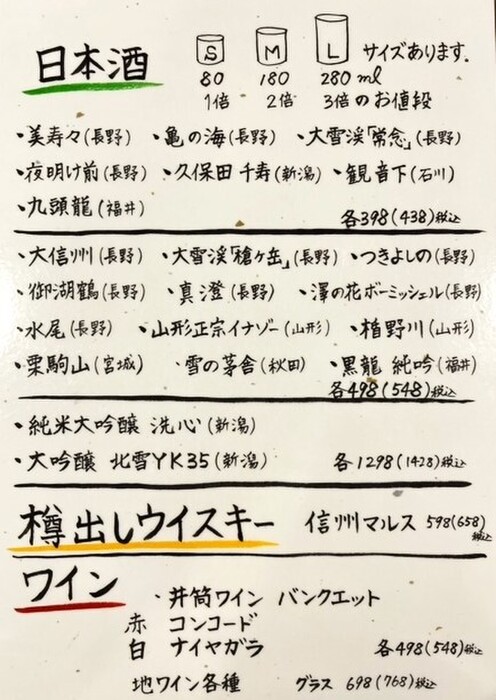 日本酒
S M L サイズあります。
80 180 280 ml
1倍 2倍 3倍のお値段
・美寿々(長野) ・亀の海(長野) ・大雪渓「常念」(長野)
・夜明け前(長野) ・久保田 千寿(新潟) ・観音下(石川)
・九頭龍(福井)
各398(438)税込
・大信州(長野) ・大雪渓「槍ヶ岳」(長野) ・つきよしの(長野)
・御湖鶴(長野) ・真澄(長野) ・澤の花ボーミッシェル(長野)
・水尾(長野) ・山形正宗イナゾー(山形) ・楯野川(山形)
・栗駒山(宮城) ・雪の茅舎(秋田) ・黒龍 純吟(福井)
各498(548)税込
・純米大吟醸 洗心(新潟)
・大吟醸 北雪YK35(新潟) 各1298(1428)税込
樽出しウイスキー 信州マルス 598(658)税込
ワイン
・井筒ワイン バンクエット
赤 コンコード
白 ナイヤガラ 各498(548)税込
地ワイン各種 グラス 698(768)税込